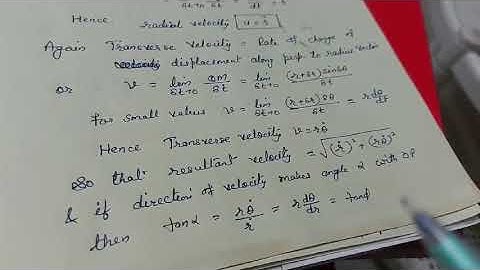 δt→0 δt dt = ṙ
Hence radial velocity u = ṙ
Again Transverse Velocity = Rate of change of
displacement along perp. to radius vector
or v = lim δt→0 QM/δt = lim δt→0 (r+δt)sinδθ/δt
For small values v = lim δt→0 (r+δt)δθ/δt = r dθ/dt
Hence Transverse velocity v = rθ̇
So that resultant velocity = √(ṙ)²+(rθ̇)²
& if direction of velocity makes angle α with OP
then tanα = rθ̇/ṙ = r dθ/dr = tanϕ